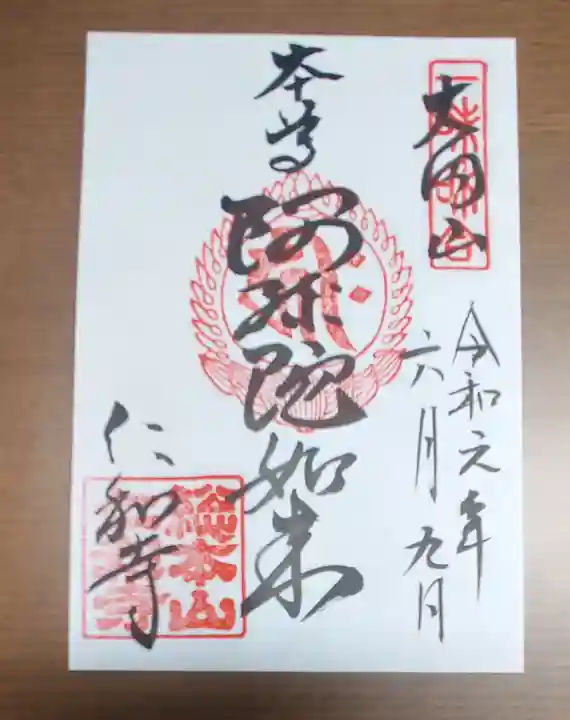 大内山
令和元年
六月九日
本尊
阿弥陀如来
仁和寺
総本山
仁和寺